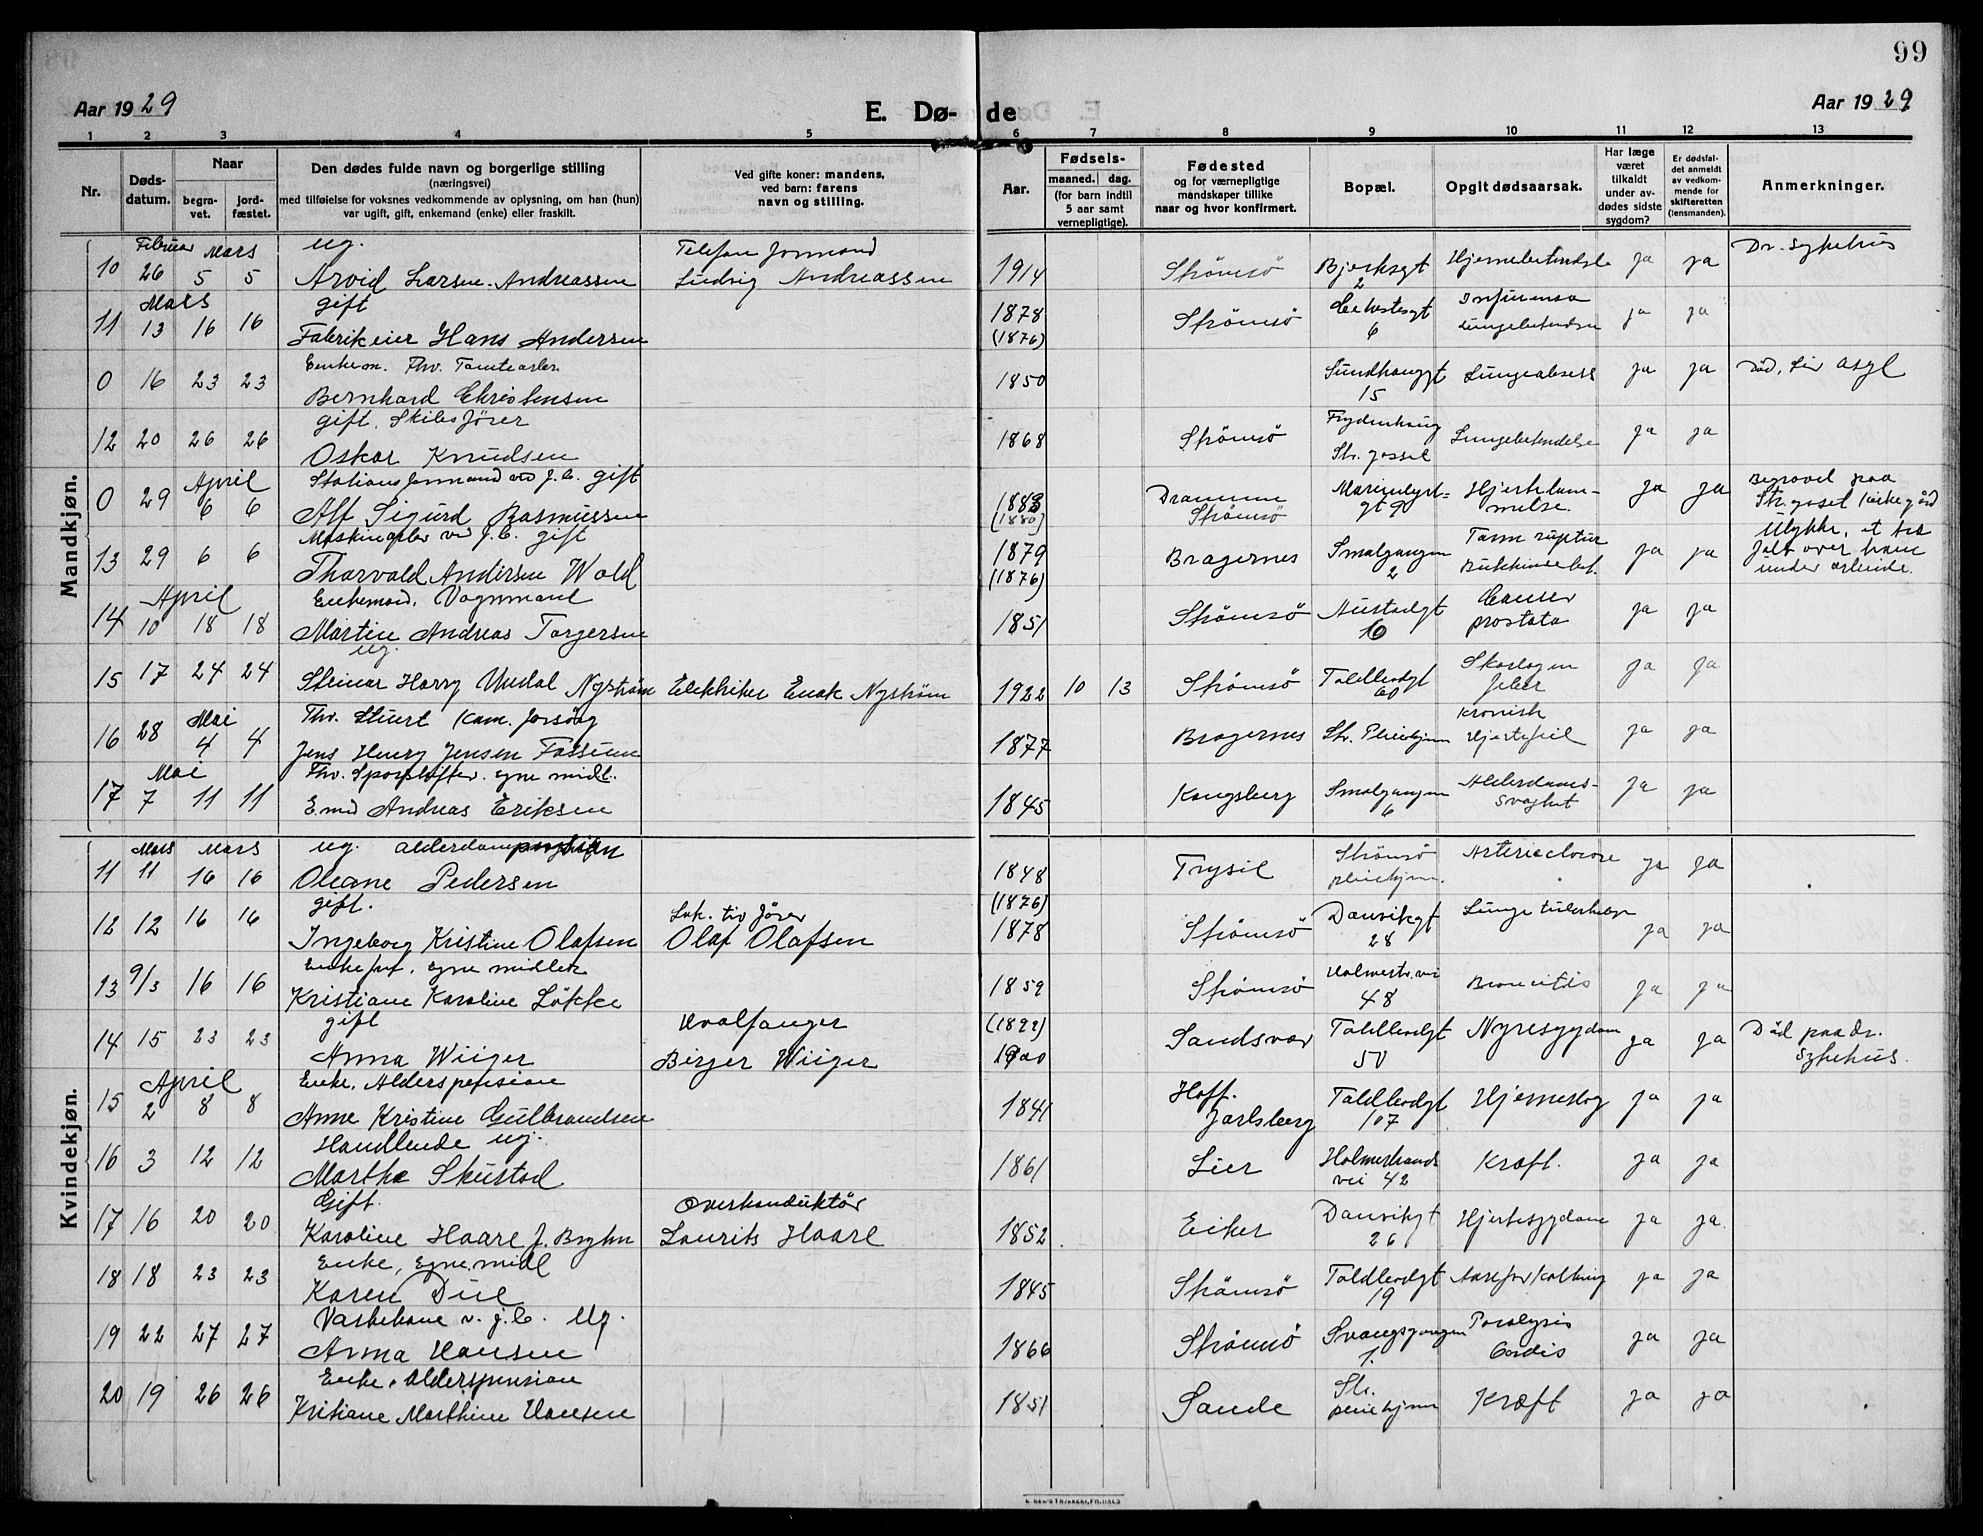 99
Aar 1929
E. Dø- de
Aar 1929
1 2 3 4 5 6 7 8 9 10 11 12 13
Nr.
Døds-
datum.
Naar
begra-
vet.
jord-
fæstet.
Den dødes fulde navn og borgerlige stilling
(næringsvei)
med tilføielse for voksnes vedkommende av oplysning, om han (hun)
var ugift, gift, enkemand (enke) eller fraskilt.
Ved gifte koner: mandens,
ved barn: farens
navn og stilling.
Aar.
Fødsels-
maaned. dag.
(for barn indtil
5 aar samt
vernepligtige).
Fødested
og for værnepligtige
mandskaper tillike
naar og hvor konfirmert.
Bopæl.
Opgit dødsaarsak.
Har læge
været
tilkaldt
under av-
dødes sidste
sygdom?
Er dødsfal-
det anmeldt
av vedkom-
mende for
skifteretten
(lensmanden).
Anmerkninger.
Mandkjøn.
Februar Mars ug. Telefon formand Dr. sykehus
10 26 5 5 Arvid Larsen-Andreassen Ludvig Andreassen 1914 Strømsö Bjerksgt 2 Hjernebetendelse ja ja
Mars gift
11 13 16 16 Fabrikeier Hans Andersen 1878 (1876) Strømsö 6 Influensa Lungebetendelse ja ja
Enkem. Fhv.
0 16 23 23 Bernhard Christensen 1850 Sundhaugt 15 Lungeabsess ja ja Död, Lier Asyl
gift. Skibsförer
12 20 26 26 Oskar Knudsen 1868 Strømsö Frydenhaug Str. gossel Lungebetendelse ja ja
April Stationsformand ved J.b. gift
0 29 6 6 Alf Sigurd Rasmussen 1883 (1880) Drammen Strømsö Marienlyst- gt 9 Hjertelam- melse. ja ja Begravet paa Str. goset kirkegård
Maskinarb ved J.b. gift
13 29 6 6 Thorvald Andersen Wold 1879 (1876) Bragernes Smalgangen 2 Tarm ruptur Bukhindebet. ja ja Ulykke, et fat falt over ham under arbeide.
April Enkemand. Vognmand
14 10 18 18 Martin Andreas Torgersen 1851 Strømsö Austadgt 10 Cancer prostata ja ja
ug.
15 17 24 24 Steinar Harry Undal Nyström Elektriker Enok Nyström 1922 10 13 Strømsö Toldbodgt 60 Skarlagen feber ja ja
Mai Fhv. Stuert kom. forsörg
16 28 4 4 Jens Henry Jensen Fossum 1877 Bragernes Str. Pleiehjem Kronisk Hjertefeil ja ja
Mai Fhv. egne midl.
17 7 11 11 Emil Andreas Eriksen 1845 Kongsberg Smalgangen 6 Alderdoms- svaghet ja ja
Kvindekjøn.
Mars Mars ug. alderdomspension
11 11 16 16 Oleane Pedersen 1848 Trysil Strømsö pleiehjem. ja ja
gift. Lok. tiv förer
12 12 16 16 Ingeborg Kristine Olafsen Olaf Olafsen (1876) 1878 Strømsö Dansvikgt 28 Lunge tuberkulose ja ja
Enkefru. Egne midler
13 9/3 16 16 Kristiane Karoline Lökke 1859 Strømsö Holmestr. vei 48 Broncitis ja ja
gift Hvalfanger
14 15 23 23 Anna Wiiger Birger Wiiger (1892) 1900 Sandsvær Toldbodgt 50 Nyresygdom ja ja Död paa Dr. Sykehus.
April Enke. Alderspension
15 2 8 8 Anne Kristine Gulbrandsen 1841 Hoff. Jarlsberg Toldbodgt 107 Hjerneslag ja ja
Handlende ug.
16 3 12 12 Marthe Skustad 1861 Lier Holmestrands vei 42 Kræft. ja ja
Gift. Overkonduktör
17 16 20 20 Karoline Haare f. Bryhn Laurits Haare 1852 Eiker Dansvikgt 26 Hjertesygdom ja ja.
Enke, Egne midl
18 18 23 23 Karen Due 1845 Strømsö Toldbodgt 19 Aareforkalkning ja ja
Vaskekone v. J.b. Ug.
19 22 27 27 Anna Hansen 1866 Strømsö Svangsgangen 1. Paralysis Cordis ja ja
Enke. Alderspension
20 19 26 26 Kristiane Marthine Hansen 1851 Sande Str. pleiehjem Kræft ja ja